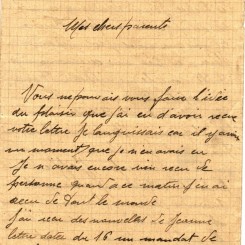 Mes chers parents
Vous ne pouvais vous faire l'idée
du plaisir que j'ai eu d'avoir recu
votre lettre Je languissais car il y avais
un moment que je n'en avais eu
Je n'avais encore rien recu de
personne quand a ce matin j'en ai
recu de tout le monde
J'ai recu des nouvelles de Jeanne
lettre datee du 16 un mandat de